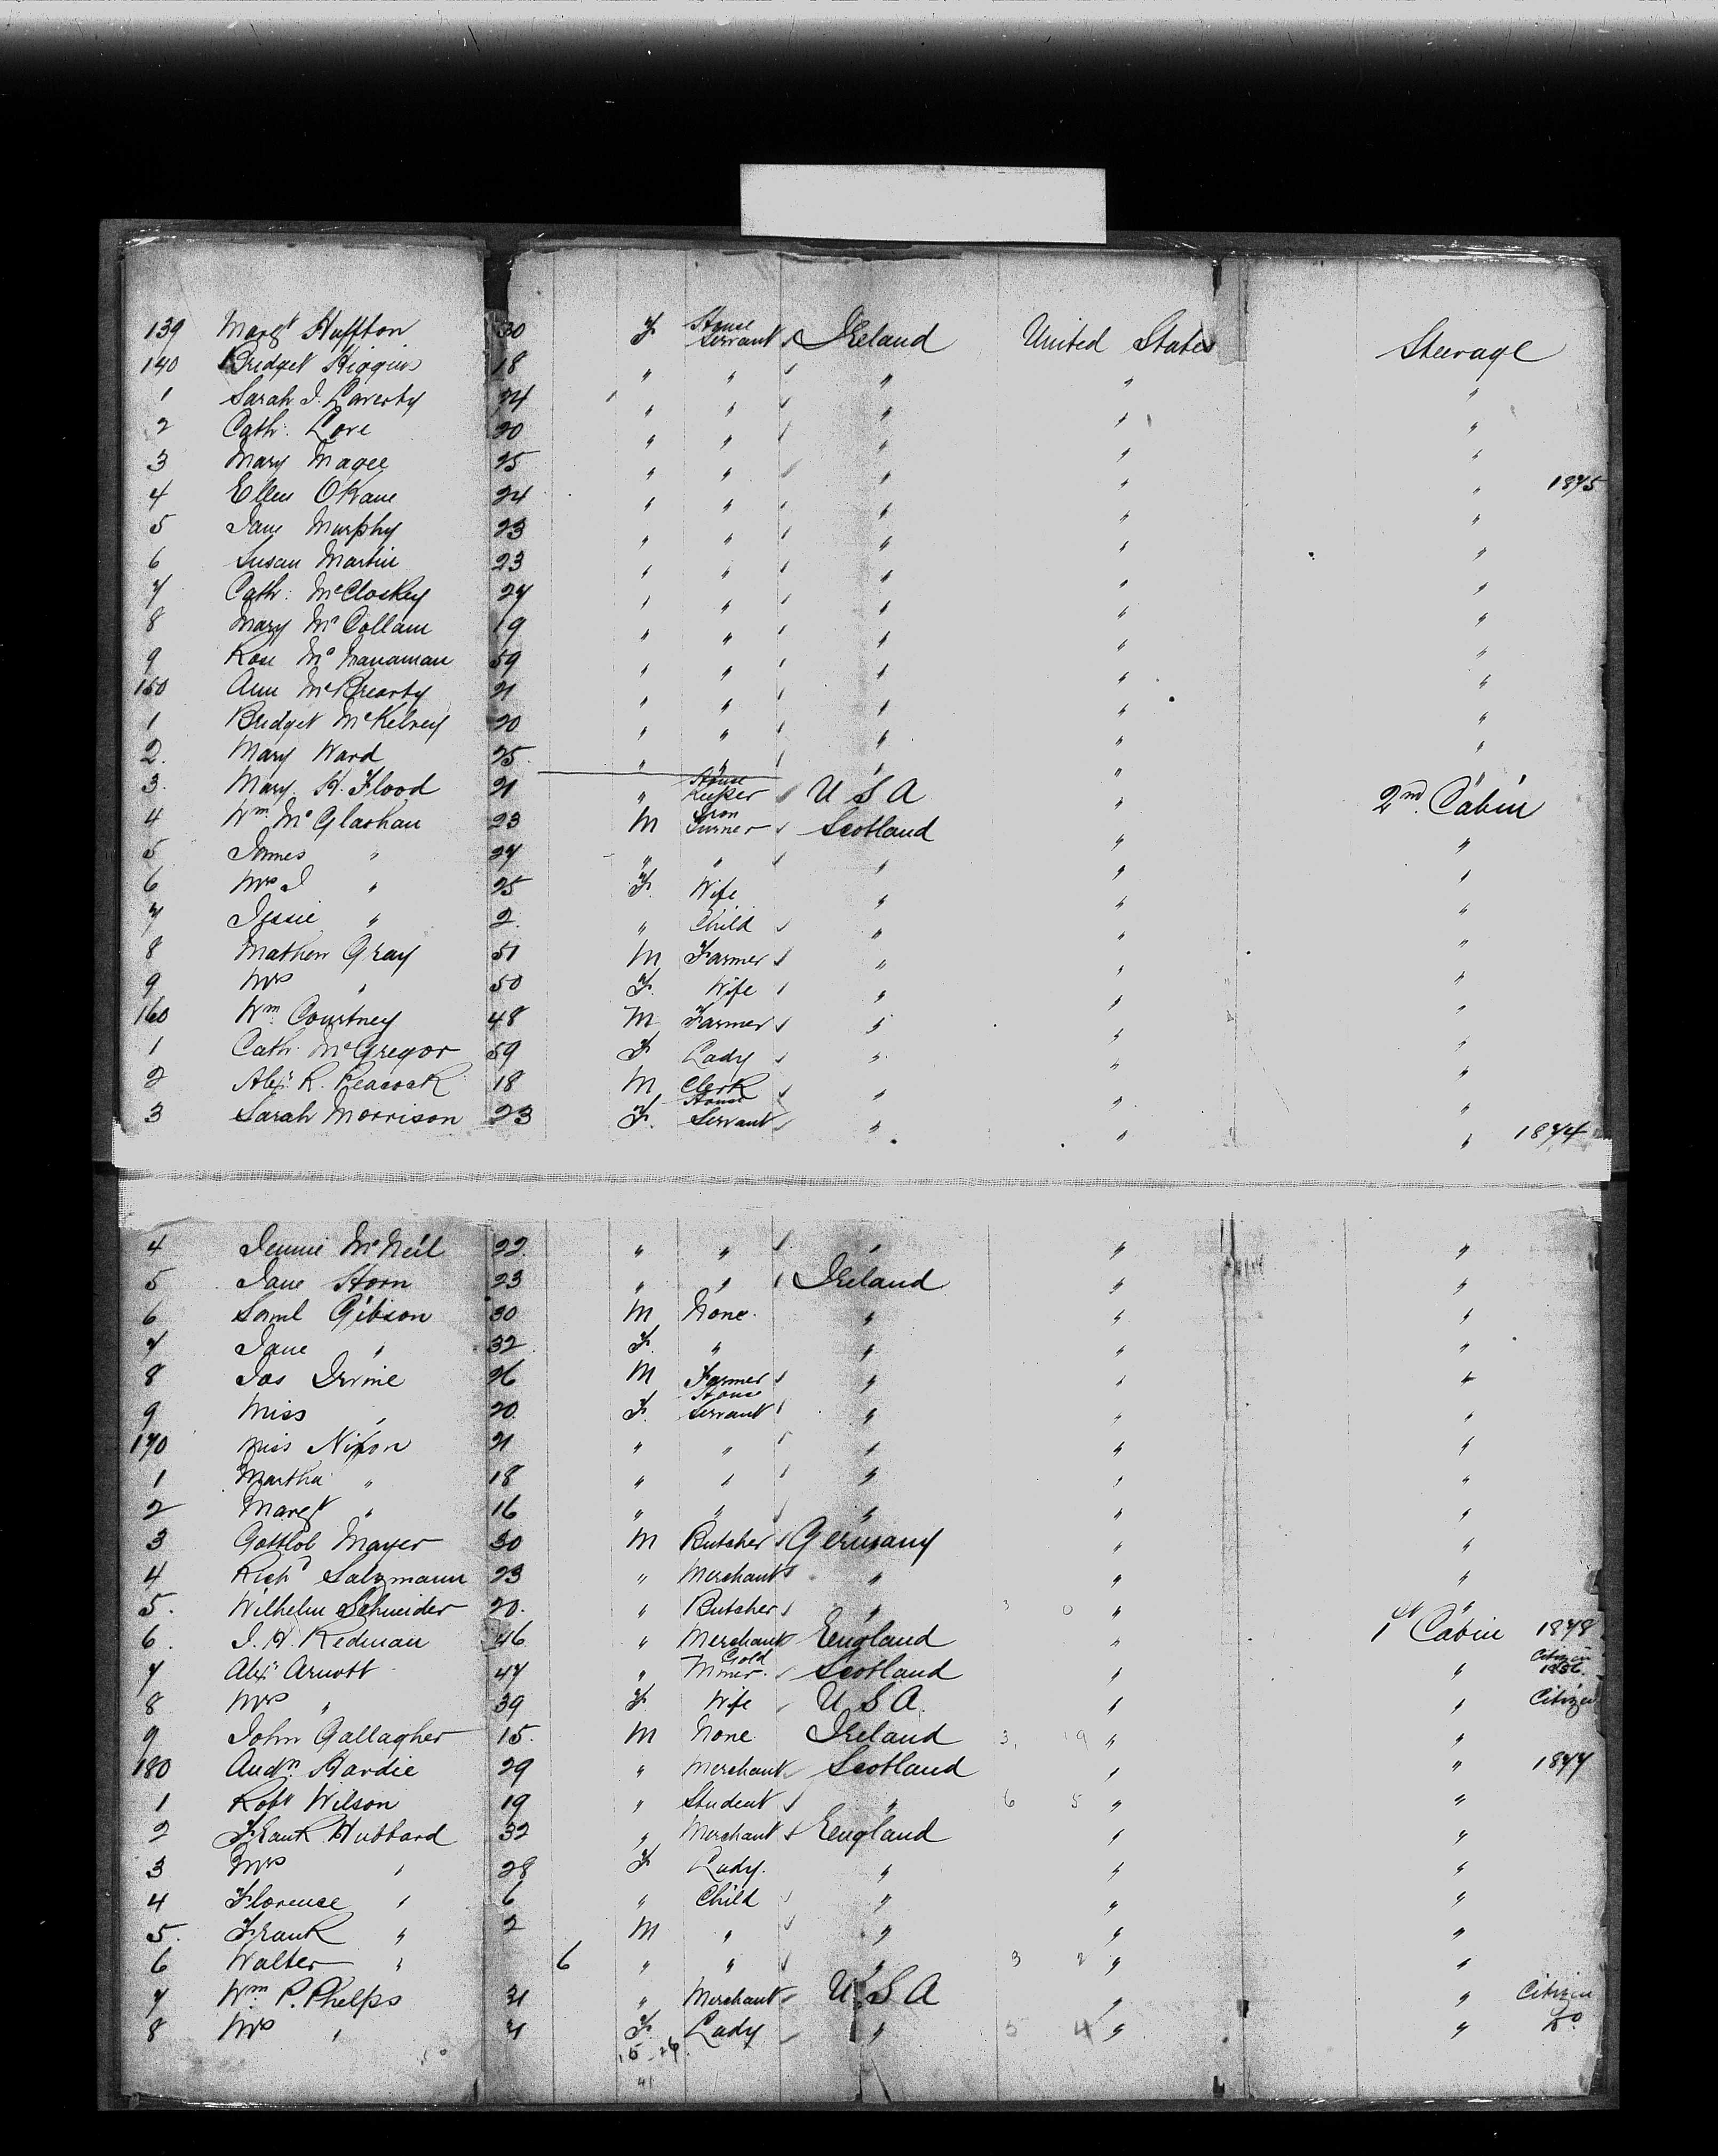 139 Margt Huffton 30 F House Servant Ireland United States Steerage
140 Bridget Higgins 18 " " " " "
1 Sarah J. Laverty 24 " " " " "
2 Cath: Love 20 " " " " "
3 Mary Magee 25 " " " " "
4 Ellen OKane 24 " " " " " 1875
5 Jane Murphy 23 " " " " "
6 Susan Martin 23 " " " " "
7 Cath: McCloskey 27 " " " " "
8 Mary McCollam 19 " " " " "
9 Rose McManaman 59 " " " " "
150 Ann McBrearty 21 " " " " "
1 Bridget McKelvey 20 " " " " "
2. Mary Ward 25 " " " " "
3. Mary H. Flood 21 " House Keeper U S A " 2nd Cabin
4 Wm McGlashan 23 M Iron Turner Scotland " "
5 James " 27 " " " " "
6 Mrs J " 25 F. Wife " " "
7 Jessie " 2 " Child " " "
8 Mathew Gray 51 M Farmer " " "
9 Mrs " 50 F. Wife " " "
160 Wm Courtney 48 M Farmer " " "
1 Cath. McGregor 59 F Lady " " "
2 Alexr R. Peacock 18 M Clerk " " "
3 Sarah Morrison 23 F. House Servant " " " 1874
4 Jennie McNeil 22 " " " " "
5 Jane Horn 23 " " Ireland " "
6 Saml Gibson 30 M None " " "
7 Jane " 32 F. " " " "
8 Jas Irvine 26 M Farmer " " "
9 Miss " 20 F. House Servant " " "
170 Miss Nixon 21 " " " " "
1 Martha " 18 " " " " "
2 Margt " 16 " " " " "
3 Gottlob Mayer 30 M Butcher Germany " "
4 Richd Salzmann 23 " Merchant " " "
5. Wilhelm Schneider 20. " Butcher " 3 0 " "
6. J. H. Redman 46 " Merchant England " 1st Cabin 1878
7 Alexr Arnott 47 " Gold Miner. Scotland " " Citizen 1856.
8 Mrs " 39 F Wife U S A. " " Citizen
9 John Gallagher 15. M None Ireland 3, 19 " "
180 Andw. Hardie 29 " Merchant Scotland " " 1877
1 Robt Wilson 19 " Student " 6 5 " "
2 Frank Hubbard 32 " Merchant England " "
3 Mrs " 28 F Lady. " " "
4 Florence " 6 " Child " " "
5. Frank " 2 M " " " "
6 Walter " 6 " " " 3 2 " "
7 Wm. P. Phelps 31 " Merchant U S A " " Citizen
8 Mrs " 31 F. Lady " 5 4 " " Do
15 26
41